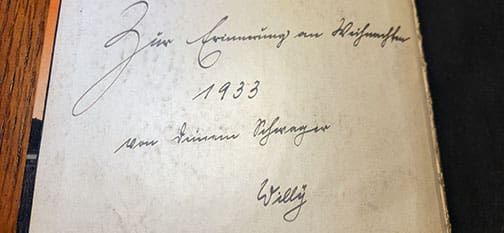 Zur Erinnerung an Weihnachten
1933
von deinem Schwager
Willÿ